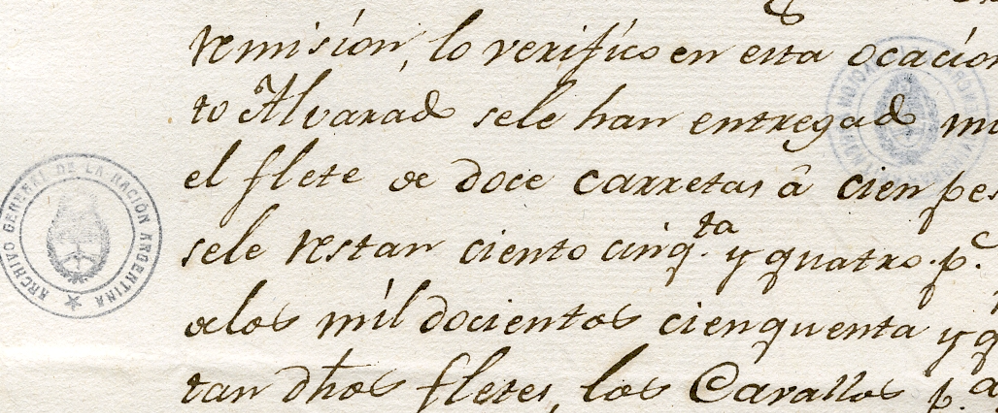 remision, lo verifico en esta ocacion
to Alvarado sele han entregado
el flete de doce carretas â cien pes
sele restan ciento cinq.ta y quatro p.s
alos mil docientos cienquenta y q
tan dhos fletes, los Cavallos p.a
ARCHIVO GENERAL DE LA NACIÓN ARGENTINA